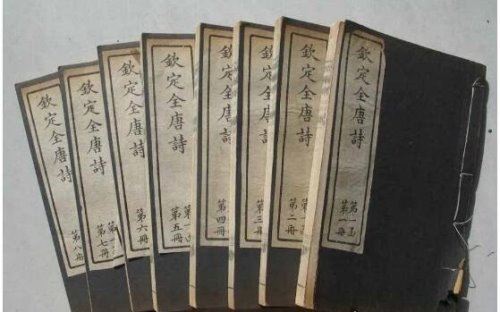 欽定全唐詩
第一函
第一冊
欽定全唐詩
第二冊
欽定全唐詩
第三冊
欽定全唐詩
第四冊
欽定全唐詩
第一函
第五冊
欽定全唐詩
第六冊
欽定全唐詩
第七冊
欽定全唐詩
第八冊